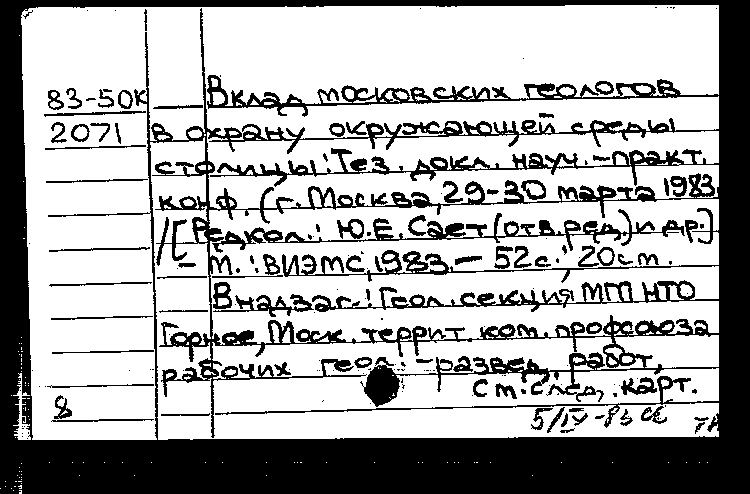 83-50К Вклад московских геологов
2071 в охрану окружающей среды
столицы: Тез. докл. науч.-практ.
конф. (г. Москва, 29-30 марта 1983
/[Редкол.: Ю.Е. Сает (отв. ред.) и др.]
- М.: ВИЭМС, 1983. - 52 с.; 20 см.
В надзаг.: Геол. секция МГП НТО
Горное, Моск. террит. ком. профсоюза
рабочих геол.-развед. работ,
См. след. карт.
8
5/IV-83